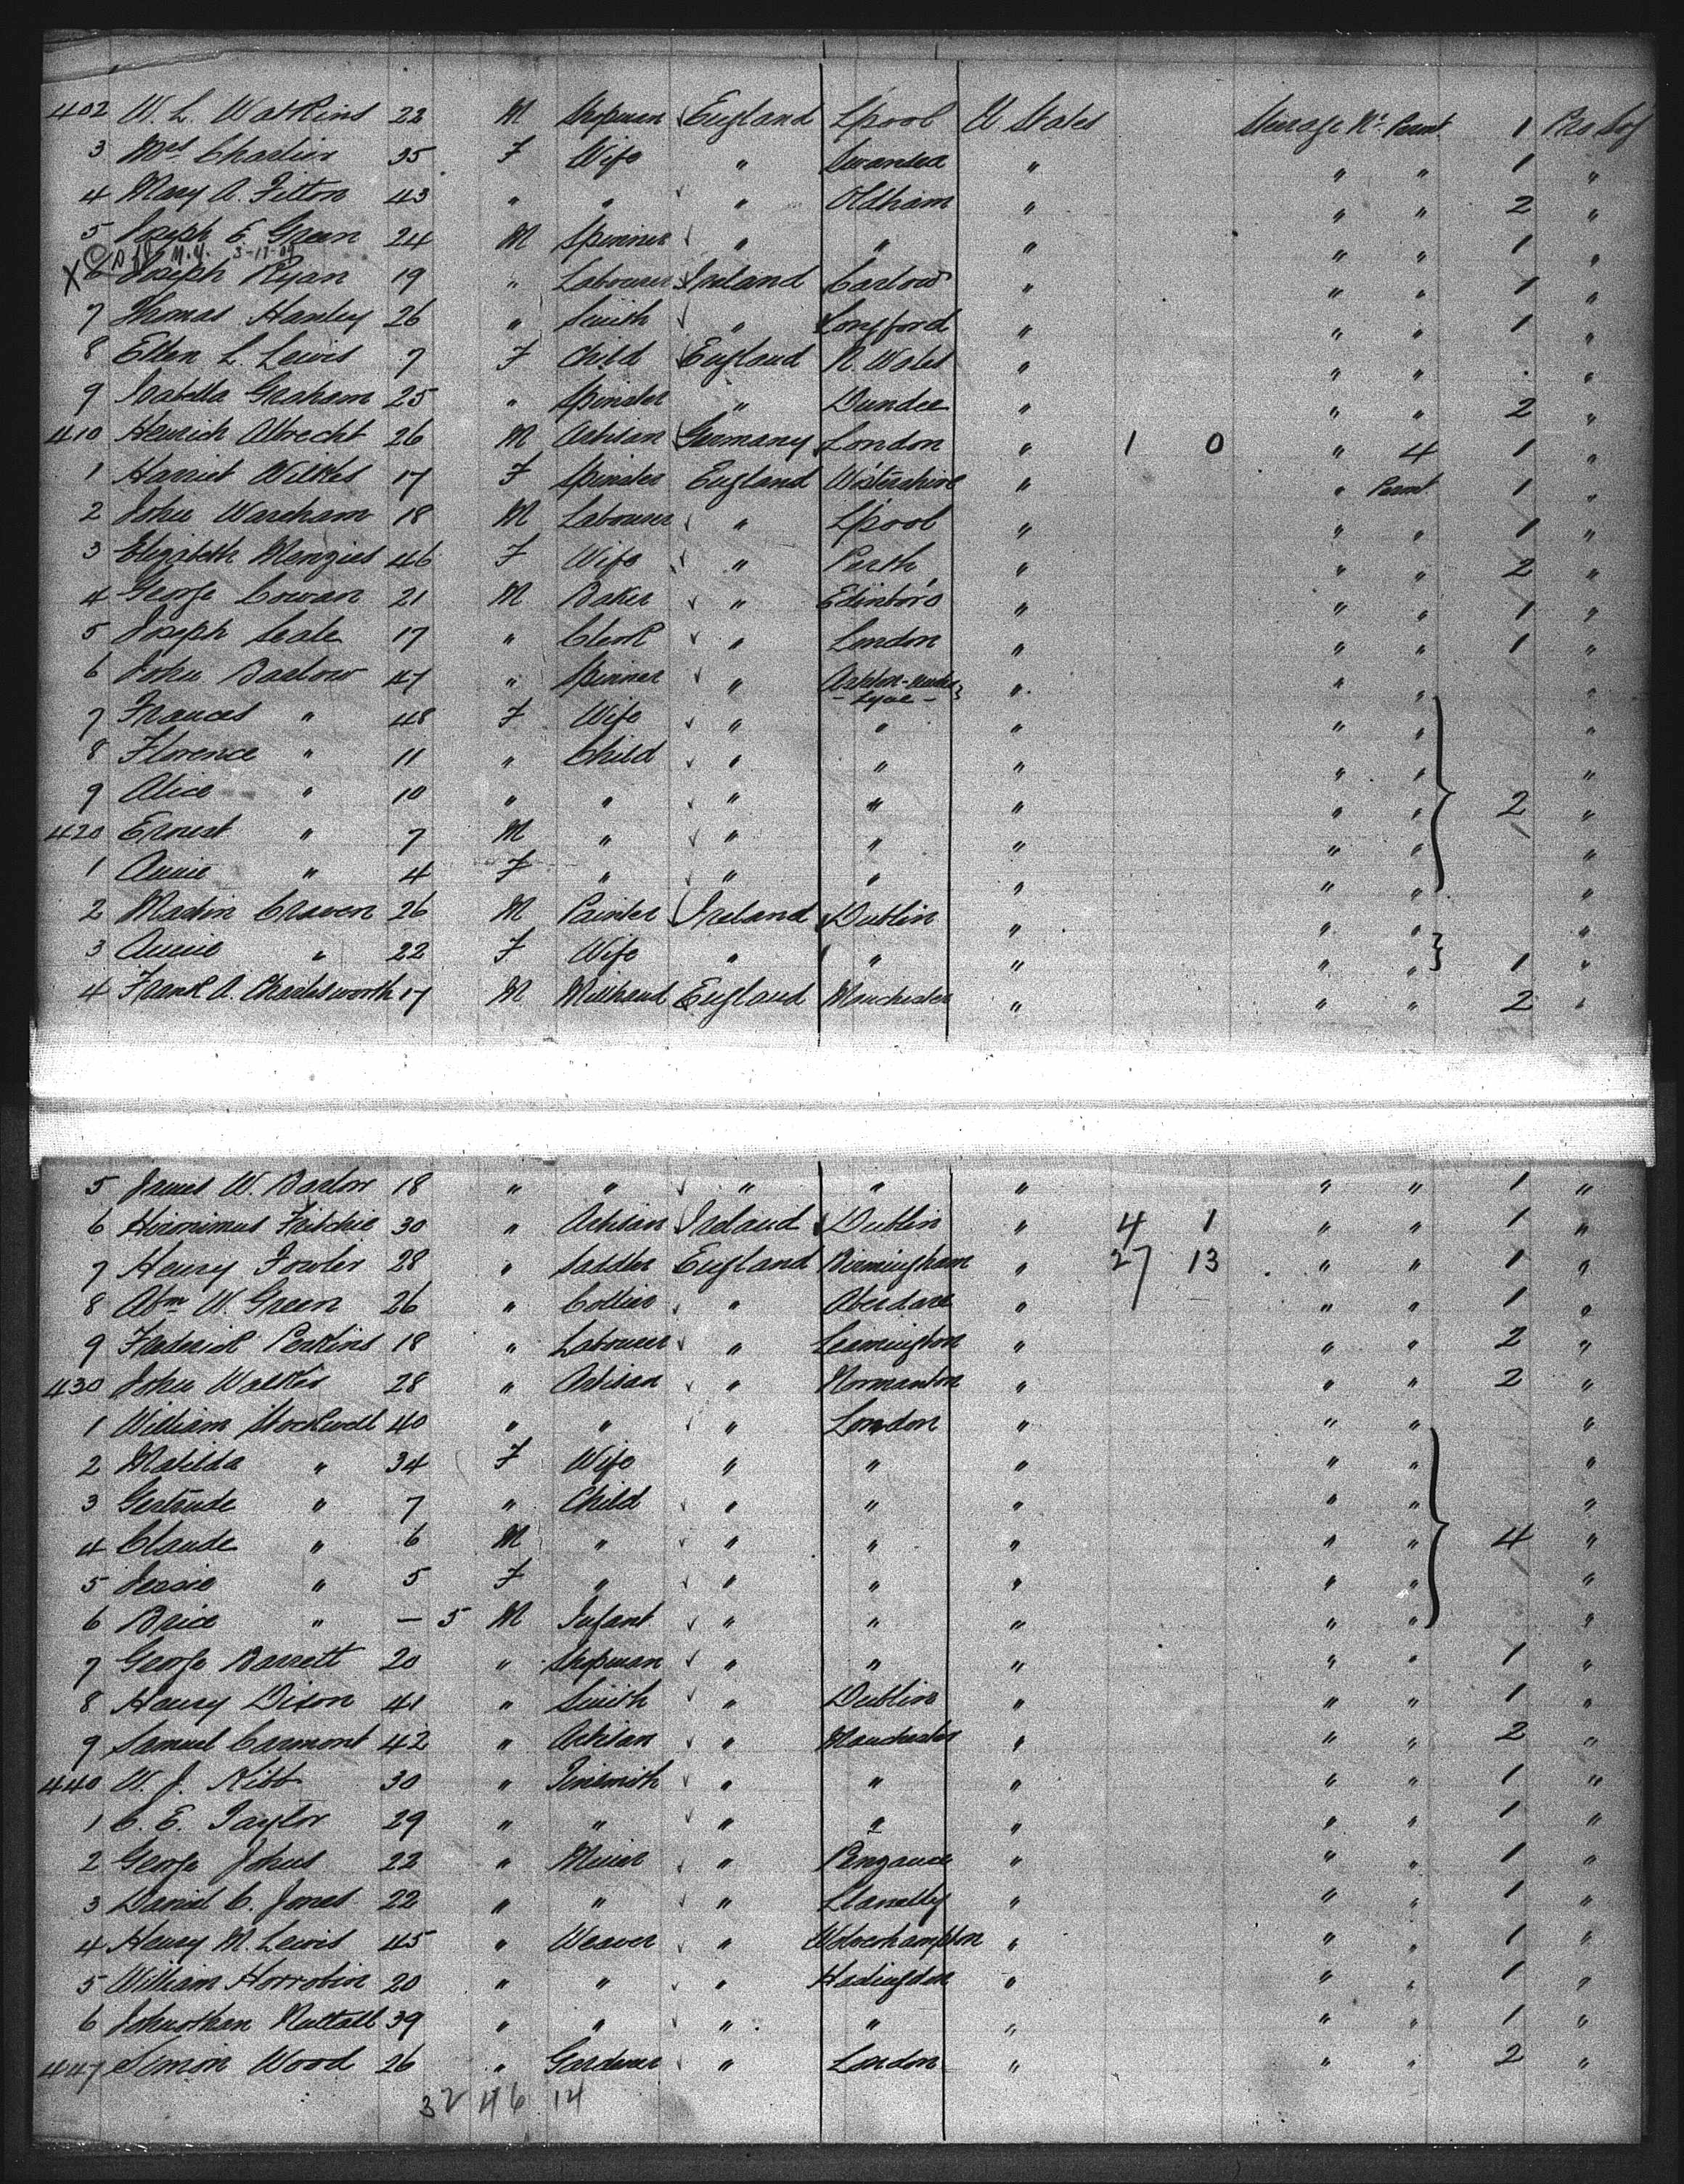 402 W. L. Watkins 22 M Shopman England L'pool U States Steerage No. Permt 1 Pro Soj
3 Mrs Charlier 35 F Wife " Swansea " " " 1 "
4 Mary A. Fitton 43 " " " Oldham " " " 2 "
5 Joseph E Green 24 M Spinner " " " " " 1 "
3-17-09
X 6 Joseph Ryan 19 " Labourer Ireland Carlow " " " 1 "
7 Thomas Hanley 26 " Smith " Longford " " " 1 "
8 Ellen L. Lewis 7 F Child England N. Wales " " " . "
9 Isabella Graham 25 " Spinster " Dundee " " " 2 "
410 Heinrich Albrecht 26 M Artisan Germany London " 1 0 " 4 1 "
1 Harriet Wilkes 17 F Spinster England Wo'stershire " " Permt 1 "
2 John Wareham 18 M Labourer " L'pool " " " 1 "
3 Elizabeth Menzies 46 F Wife " Perth " " " 2 "
4 George Cowan 21 M Baker " Edinboro " " " 1 "
5 Joseph Seale 17 " Clerk " London " " " 1 "
6 John Barlow 47 " Spinner " Ashton-under " " " "
- Lyne -
7 Frances " 48 F Wife " " " " " "
8 Florence " 11 " Child " " " " " "
9 Alice " 10 " " " " " " " 2 "
420 Ernest " 7 M " " " " " " "
1 Annie " 4 F " " " " " " "
2 Martin Craven 26 M Painter Ireland Dublin " " " "
3 Annie " 22 F Wife " " " " " 1 "
4 Frank A. Charlesworth 17 M Millhand England Manchester " " " 2 "
5 James W. Barlow 18 " " " " " " " 1 "
6 Hieronimus Fritchie 30 " Artisan Ireland Dublin " 4 1 " " 1 "
7 Henry Fowler 28 " Saddler England Birmingham " 27 13 " " 1 "
8 Abm W. Green 26 " Collier " Aberdare " " " 1 "
9 Frederick Perkins 18 " Labourer " Leamington " " " 2 "
430 John Walker 28 " Artisan " Normanton " " " 2 "
1 William Stockwell 40 " " " London " " " "
2 Matilda " 34 F Wife " " " " " "
3 Gertrude " 7 " Child " " " " " "
4 Claude " 6 M " " " " " " 4 "
5 Jessie " 5 F " " " " " " "
6 Brice " — 5 M Infant " " " " " "
7 George Barrett 20 " Shopman " " " " " 1 "
8 Henry Dixon 41 " Smith " Dublin " " " 1 "
9 Samuel Carmont 42 " Artisan " Manchester " " " 2 "
440 W. J. Kibb 30 " Tinsmith " " " " " 1 "
1 C. E. Taylor 29 " " " " " " " 1 "
2 George Johns 22 " Miner " Penzance " " " 1 "
3 Daniel C. Jones 22 " " " Llanelly " " " 1 "
4 Henry M. Lewis 45 " Weaver " Wolverhampton " " " 1 "
5 William Horrobin 20 " " " Haslingden " " " 1 "
6 Johnathan Nuttall 39 " " " " " " " 1 "
447 Simon Wood 26 " Gardener " London " " " 2 "
32 46 14